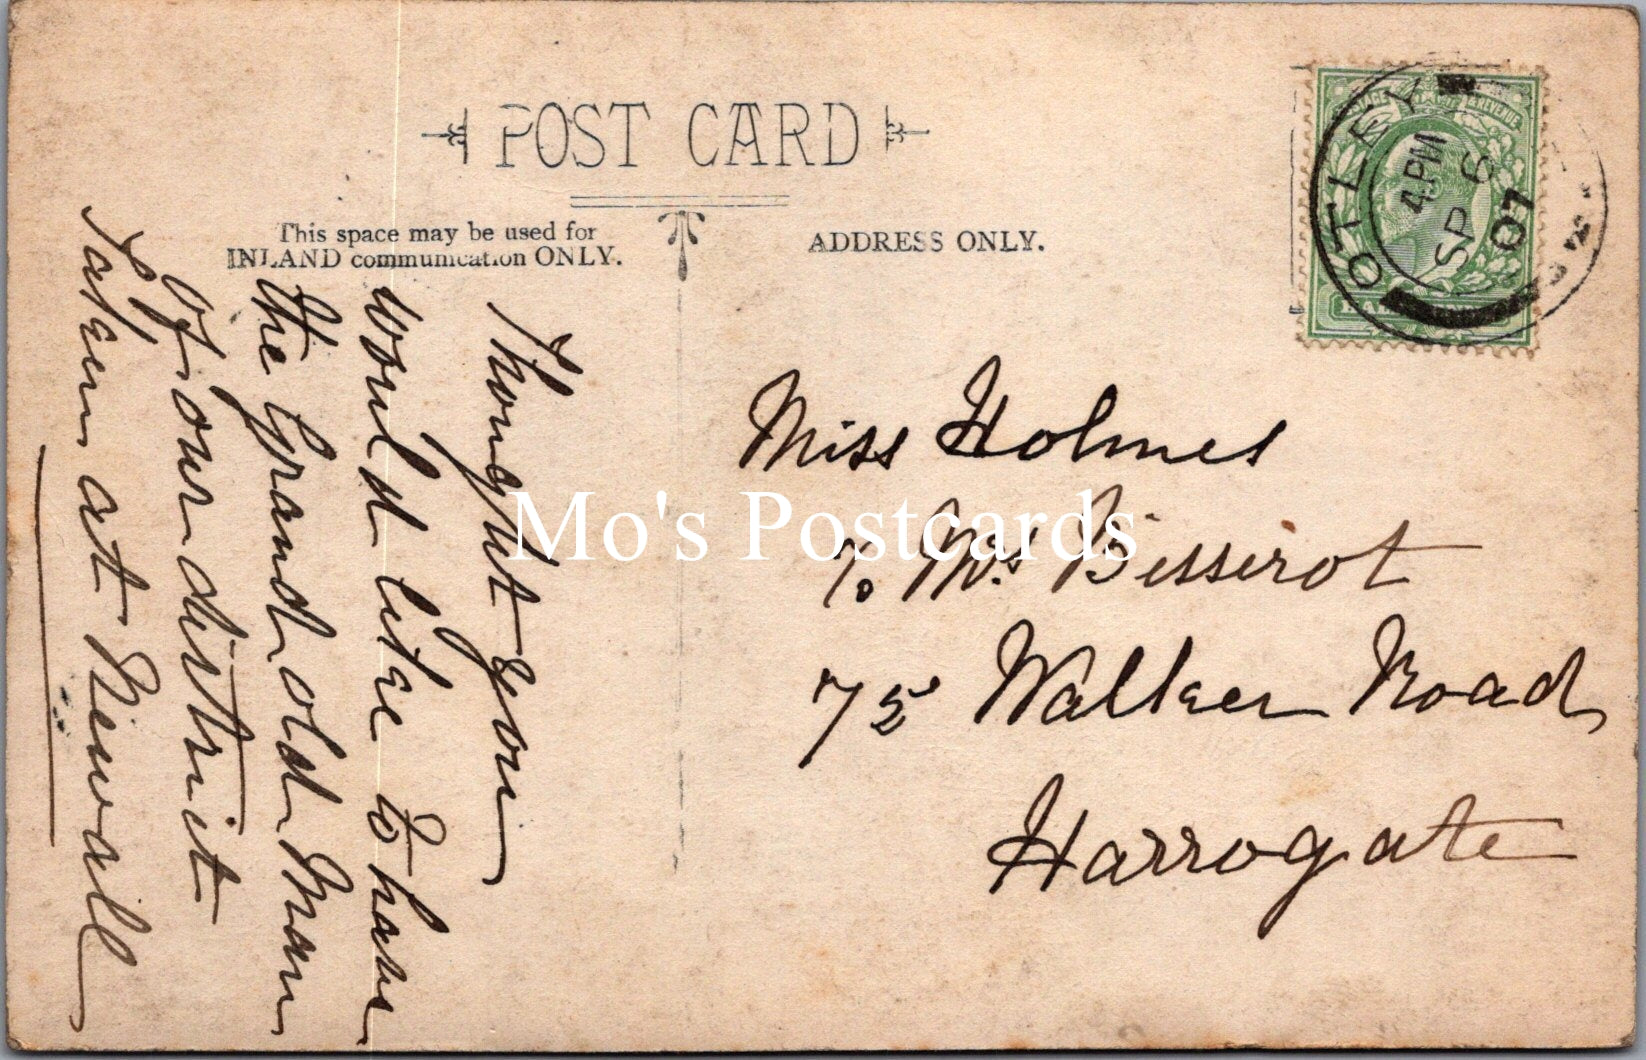 POST CARD
This space may be used for
INLAND communication ONLY.
ADDRESS ONLY.
OTLEY
4.PM
SP 6
07
Thought you
would like to have
the Grand old Man
of our district
taken at
Miss Holmes
c/o Mrs Bisserot
75 Walker Road
Harrogate
Mo's Postcards